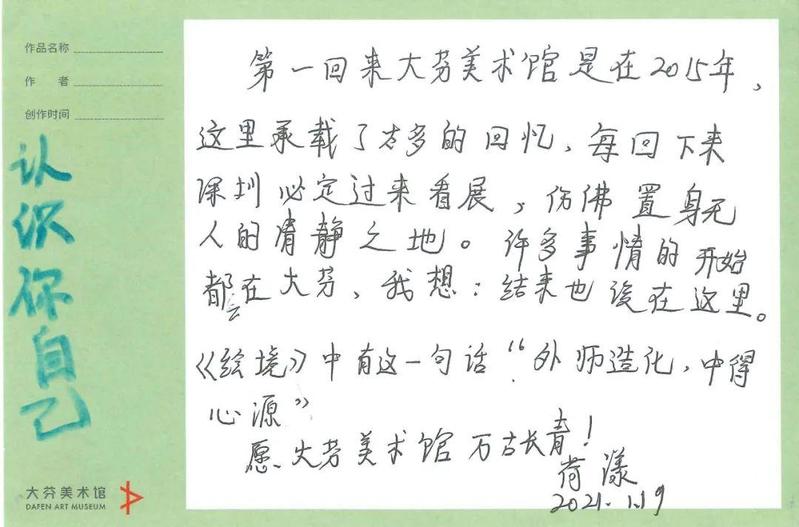 作品名称
作 者
创作时间
认识你自己
第一回来大芬美术馆是在2015年，
这里承载了太多的回忆，每回下来
深圳必定过来看展，仿佛置身无
人的清静之地。许多事情的开始
都会在大芬，我想：结束也该在这里。
《绘境》中有这一句话“外师造化，中得
心源”
愿大芬美术馆万古长青！
荷漾
2021.1.19
大芬美术馆
DAFEN ART MUSEUM